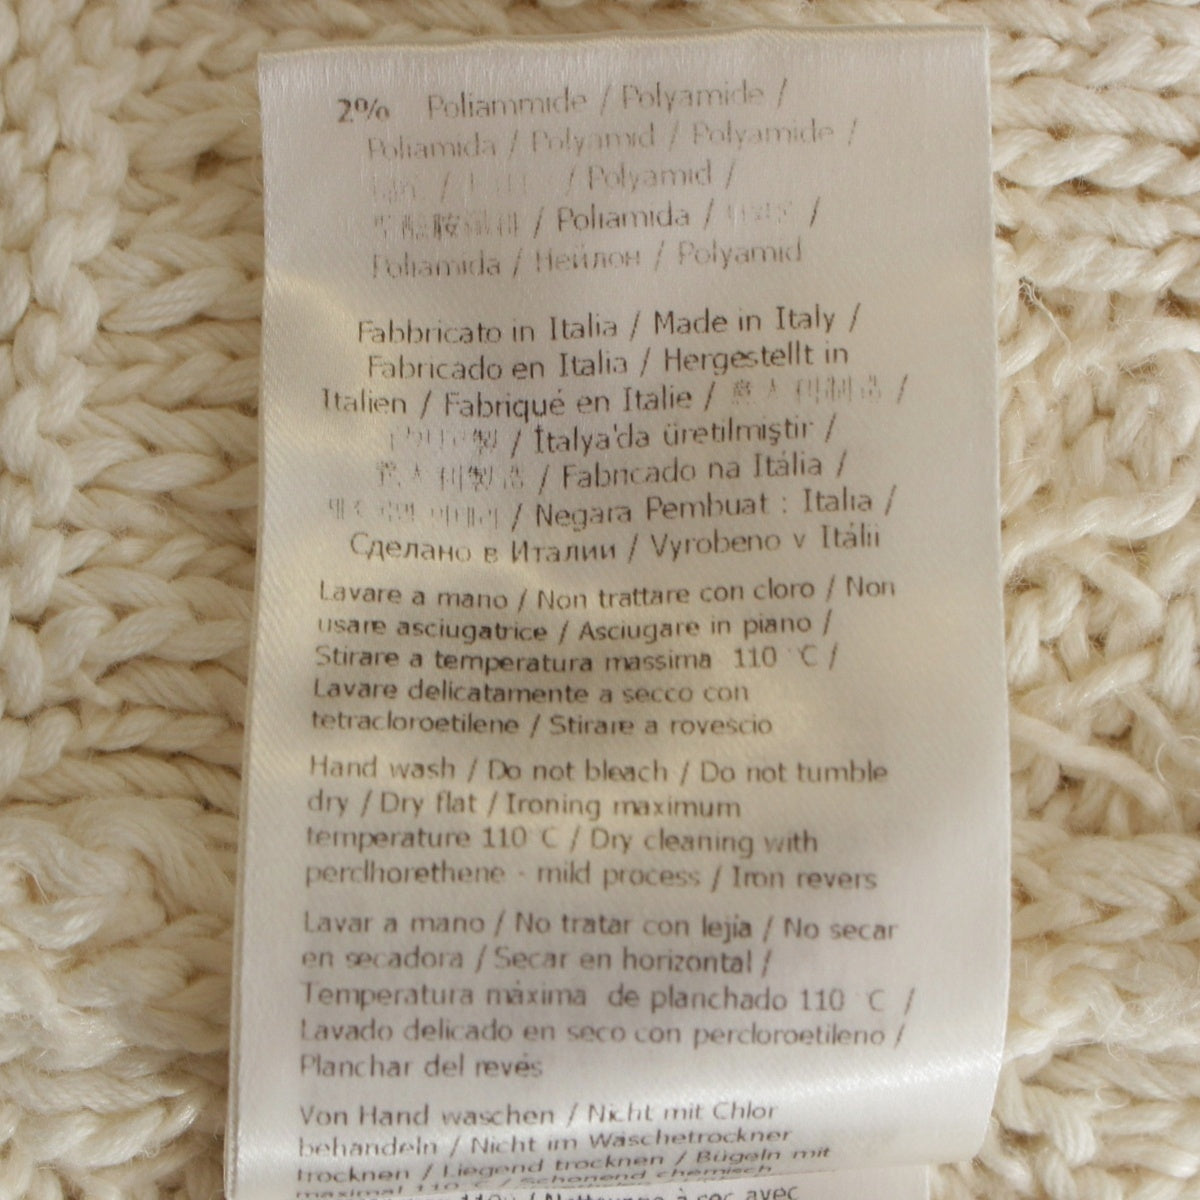 2% Poliammide / Polyamide /
Poliamida / Polyamid / Polyamide /
/ / Polyamid /
/ Poliamida / /
Poliamida / Нейлон / Polyamid
Fabbricato in Italia / Made in Italy /
Fabricado en Italia / Hergestellt in
Italien / Fabriqué en Italie / 意大利制造 /
/ İtalya'da üretilmiştir /
意大利製造 / Fabricado na Itália /
/ Negara Pembuat : Italia /
Сделано в Италии / Vyrobeno v Itálii
Lavare a mano / Non trattare con cloro / Non
usare asciugatrice / Asciugare in piano /
Stirare a temperatura massima 110 °C /
Lavare delicatamente a secco con
tetracloroetilene / Stirare a rovescio
Hand wash / Do not bleach / Do not tumble
dry / Dry flat / Ironing maximum
temperature 110 °C / Dry cleaning with
perclhorethene - mild process / Iron revers
Lavar a mano / No tratar con lejía / No secar
en secadora / Secar en horizontal /
Temperatura máxima de planchado 110 °C /
Lavado delicado en seco con percloroetileno /
Planchar del revés
Von Hand waschen / Nicht mit Chlor
behandeln / Nicht im Wäschetrockner
trocknen / Liegend trocknen / Bügeln mit
maximal 110 °C / Schonend chemisch
/ Nettoyage à sec avec